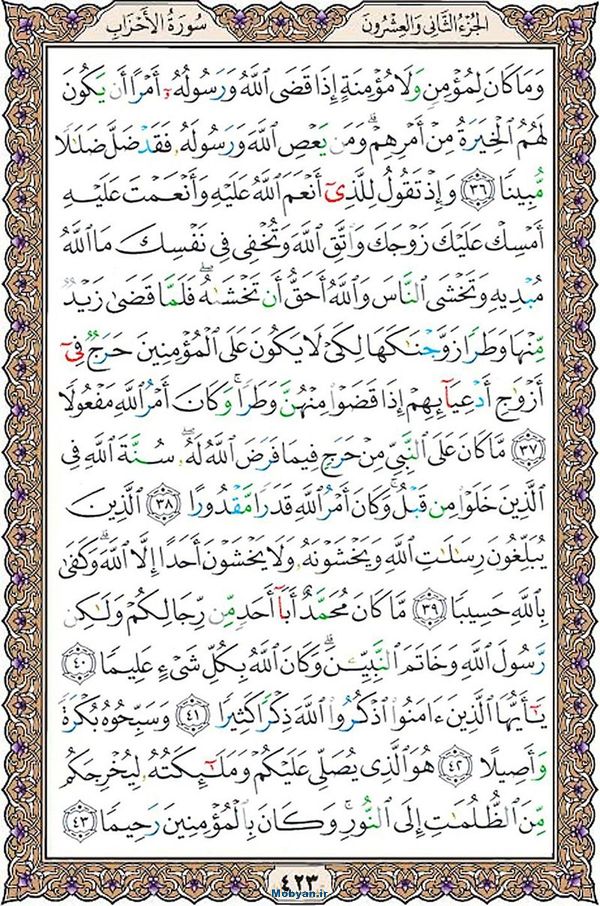 الجُزءُ الثَّانِي وَالعِشْرُونَ سُورَةُ الأَحْزَابِ
وَمَا كَانَ لِمُؤْمِنٍ وَلَا مُؤْمِنَةٍ إِذَا قَضَى ٱللَّهُ وَرَسُولُهُۥٓ أَمْرًا أَن يَكُونَ
لَهُمُ ٱلْخِيَرَةُ مِنْ أَمْرِهِمْ ۗ وَمَن يَعْصِ ٱللَّهَ وَرَسُولَهُۥ فَقَدْ ضَلَّ ضَلَـٰلًا
مُّبِينًا ٣٦ وَإِذْ تَقُولُ لِلَّذِىٓ أَنْعَمَ ٱللَّهُ عَلَيْهِ وَأَنْعَمْتَ عَلَيْهِ
أَمْسِكْ عَلَيْكَ زَوْجَكَ وَٱتَّقِ ٱللَّهَ وَتُخْفِى فِى نَفْسِكَ مَا ٱللَّهُ
مُبْدِيهِ وَتَخْشَى ٱلنَّاسَ وَٱللَّهُ أَحَقُّ أَن تَخْشَىٰهُ ۖ فَلَمَّا قَضَىٰ زَيْدٌ
مِّنْهَا وَطَرًا زَوَّجْنَـٰكَهَا لِكَىْ لَا يَكُونَ عَلَى ٱلْمُؤْمِنِينَ حَرَجٌ فِىٓ
أَزْوَٰجِ أَدْعِيَآئِهِمْ إِذَا قَضَوْا۟ مِنْهُنَّ وَطَرًا ۚ وَكَانَ أَمْرُ ٱللَّهِ مَفْعُولًا
٣٧ مَّا كَانَ عَلَى ٱلنَّبِىِّ مِنْ حَرَجٍ فِيمَا فَرَضَ ٱللَّهُ لَهُۥ ۖ سُنَّةَ ٱللَّهِ فِى
ٱلَّذِينَ خَلَوْا۟ مِن قَبْلُ ۚ وَكَانَ أَمْرُ ٱللَّهِ قَدَرًا مَّقْدُورًا ٣٨ ٱلَّذِينَ
يُبَلِّغُونَ رِسَـٰلَـٰتِ ٱللَّهِ وَيَخْشَوْنَهُۥ وَلَا يَخْشَوْنَ أَحَدًا إِلَّا ٱللَّهَ ۗ وَكَفَىٰ
بِٱللَّهِ حَسِيبًا ٣٩ مَّا كَانَ مُحَمَّدٌ أَبَآ أَحَدٍ مِّن رِّجَالِكُمْ وَلَـٰكِن
رَّسُولَ ٱللَّهِ وَخَاتَمَ ٱلنَّبِيِّـۧنَ ۗ وَكَانَ ٱللَّهُ بِكُلِّ شَىْءٍ عَلِيمًا ٤٠
يَـٰٓأَيُّهَا ٱلَّذِينَ ءَامَنُوا۟ ٱذْكُرُوا۟ ٱللَّهَ ذِكْرًا كَثِيرًا ٤١ وَسَبِّحُوهُ بُكْرَةً
وَأَصِيلًا ٤٢ هُوَ ٱلَّذِى يُصَلِّى عَلَيْكُمْ وَمَلَـٰٓئِكَتُهُۥ لِيُخْرِجَكُم
مِّنَ ٱلظُّلُمَـٰتِ إِلَى ٱلنُّورِ ۚ وَكَانَ بِٱلْمُؤْمِنِينَ رَحِيمًا ٤٣
٤٢٣
Mobyan.ir